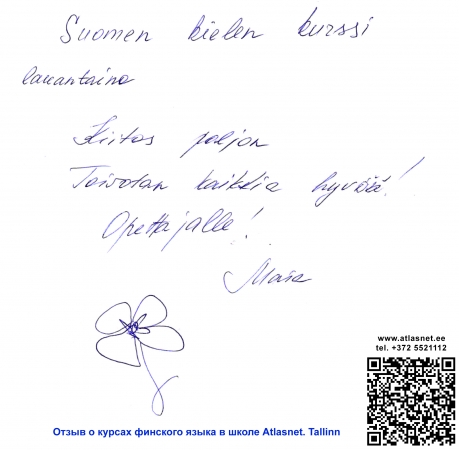 Suomen kielen kurssi
lauantaina
Kiitos paljon
Toivotan kaikkia hyvää!
Opettajalle!
Maša
www.atlasnet.ee
tel. +372 5521112
Отзыв о курсах финского языка в школе Atlasnet. Tallinn